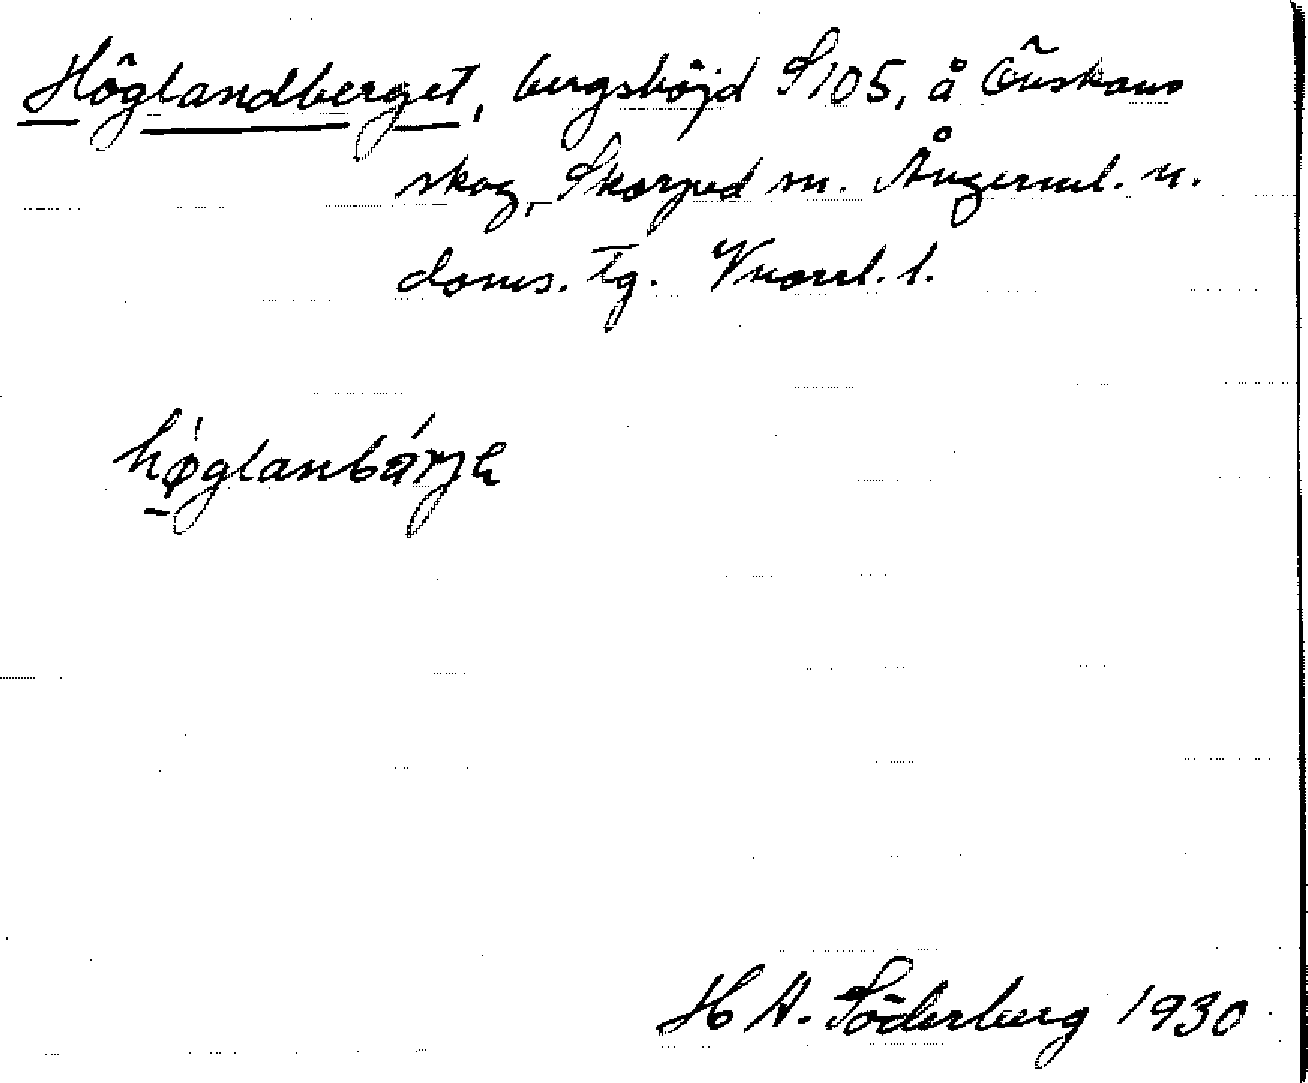 Höglandberget, bergshöjd S105, å Öuskans
skog, Skorped sn. Ångerml. n.
doms. Tg. Vnorrl. l.
høglanbárjɛ
H A. Söderberg 1930